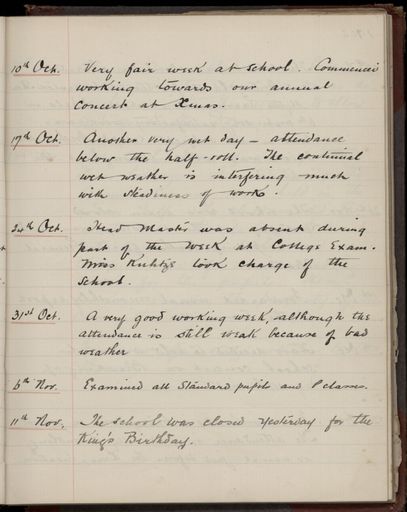 10th Oct. Very fair week at School. Commenced
working towards our annual
Concert at Xmas.
17th Oct. Another very wet day – attendance
below the half-roll. The continual
wet weather is interfering much
with steadiness of work.
24th Oct. Head Master was absent during
part of the week at College Exam.
Miss took charge of the
School.
31st Oct. A very good working week although the
attendance is still weak because of bad
weather
6th Nov. Examined all Standard pupils and P classes.
11th Nov. The school was closed yesterday for the
King's Birthday.